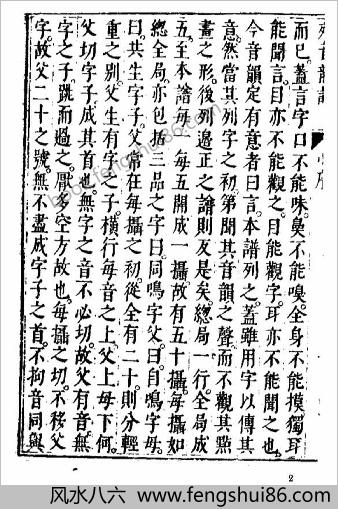 列音韻譜
而已。蓋言字口不能味。鼻不能嗅。全身不能摸。獨耳
能聞言。目亦不能觀之。目能觀字。耳亦不能聞之也。
今音韻定有意者曰言。本譜列之。蓋雖用字以傳其
意。然當其列字之初。第聞其音韻之聲。而不觀其點
畫之形。後列邊正之譜。則反是矣。總局一行。全局成
五。至本譜每一每五。開成一攝。故有五十攝。每攝如
總全局。亦包含三品之字。曰同鳴字父。曰自鳴字母。
曰共生字子。父常在每攝之初。從全有二十。則分輕
重之別。父生有字之子。橫行母音之上。父上母下。何
父切字子。成其首也。無字之音不必切。故父有音無
字之子。跳而過之。厥多空方故也。每攝之切。不移父
字。故父二十之號。無不盡成字子之首。不拘音同與
2
bbs.fengshui86.com
风水八六 - www.fengshui86.com